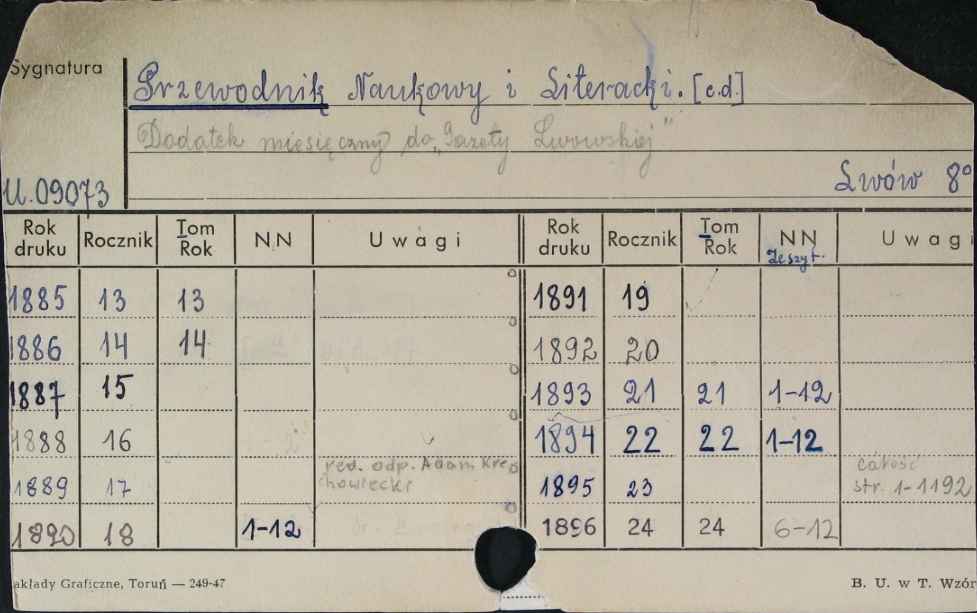 Sygnatura
Przewodnik Naukowy i Literacki. [c.d.]
Dodatek miesięczny do „Gazety Lwowskiej"
U.09073
Lwów 8°
Rok druku Rocznik Tom Rok N.N Uwagi Rok druku Rocznik Tom Rok NN Zeszyt. Uwagi
1885 13 13 1891 19
1886 14 14 1892 20
1887 15 1893 21 21 1-12
1888 16 1894 22 22 1-12
1889 17 red. odp. Adam Kre chowiecki 1895 23 całość str. 1-1192
1890 18 1-12 1896 24 24 6-12
akłady Graficzne, Toruń — 249-47 B. U. w T. Wzór